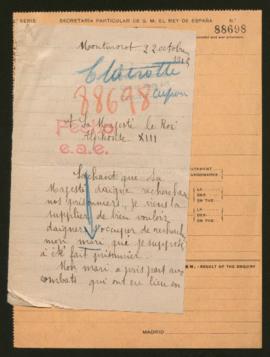 SERIE
SECRETARÍA PARTICULAR DE S. M. EL REY DE ESPAÑA
N.º
88698
Montmorot 22 octobre
88698
A Sa Majesté le Roi
Alphonse XIII
Pedido
e.a.e.
Sachant que Sa
Majesté daigne rechercher
nos prisonniers, je viens la
supplier de bien vouloir
daigner s'occuper de
mon mari que je suppose
a été fait prisonnier.
Mon mari a pris part aux
combats qui ont eu lieu en
RESULT OF THE ENQUIRY
MADRID